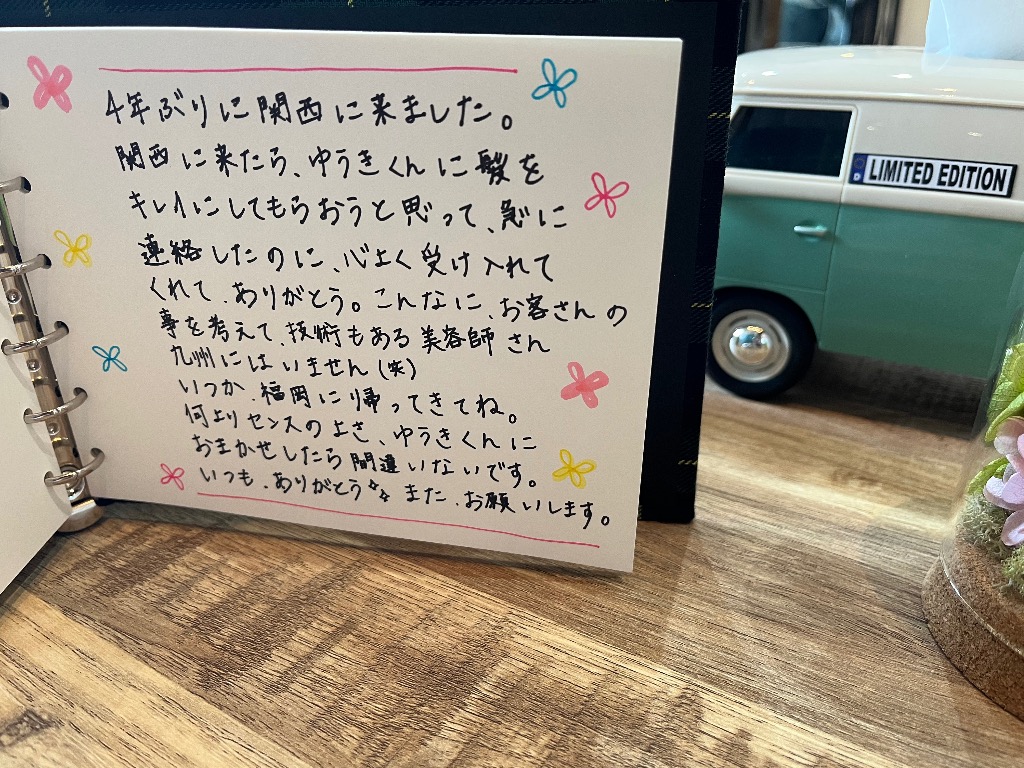 4年ぶりに関西に来ました。
関西に来たら、ゆうきくんに髪を
キレイにしてもらおうと思って、急に
連絡したのに、心よく受け入れて
くれて、ありがとう。こんなに、お客さんの
事を考えて、技術もある美容師さん
九州にはいません(笑)
いつか、福岡に帰ってきてね。
何よりセンスのよさ、ゆうきくんに
おまかせしたら間違いないです。
いつも、ありがとう また、お願いします。
LIMITED EDITION
D